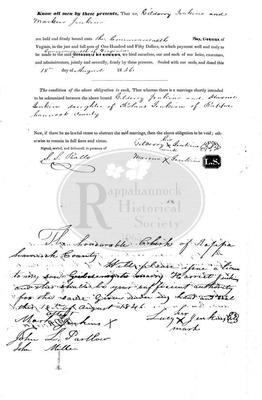 Know all men by these presents, That we, Gilderoy Jenkins and
Marcus Jenkins
are held and firmly bound unto the Commonwealth
of Virginia, in the just and full sum of One Hundred and Fifty Dollars, to which payment well and truly to
be made to the
we bind ourselves, and each of our heirs, executors,
and administrators, jointly and severally, firmly by these presents. Sealed with our seals, and dated this
18 day of August 1846
The condition of the above obligation is such, That whereas there is a marriage shortly intended
to be solemnized between the above bound Gilderoy Jenkins and Harriet
Jenkins daughter of Jenkins of Rappa-
hannock County
Now, if there be no lawful cause to obstruct the said marriage, then the above obligation to be void; other-
wise to remain in full force and virtue.
Signed, sealed, and delivered, in presence of
his
Gilderoy X Jenkins
mark
Marcus X Jenkins L.S.
Rappahannock
Historical
Society
The honourable Clerk of Rappa
hannock County Will please issue a licen
to my son Gilderoy to marry Harriet Jenkins
and this shall be your sufficient authority
for the same Given under my hand and seal
this 18 of August 1846
her
Lucy X Jenkins
mark
Marcus Jenkins X
John L. Partlow
John Miller